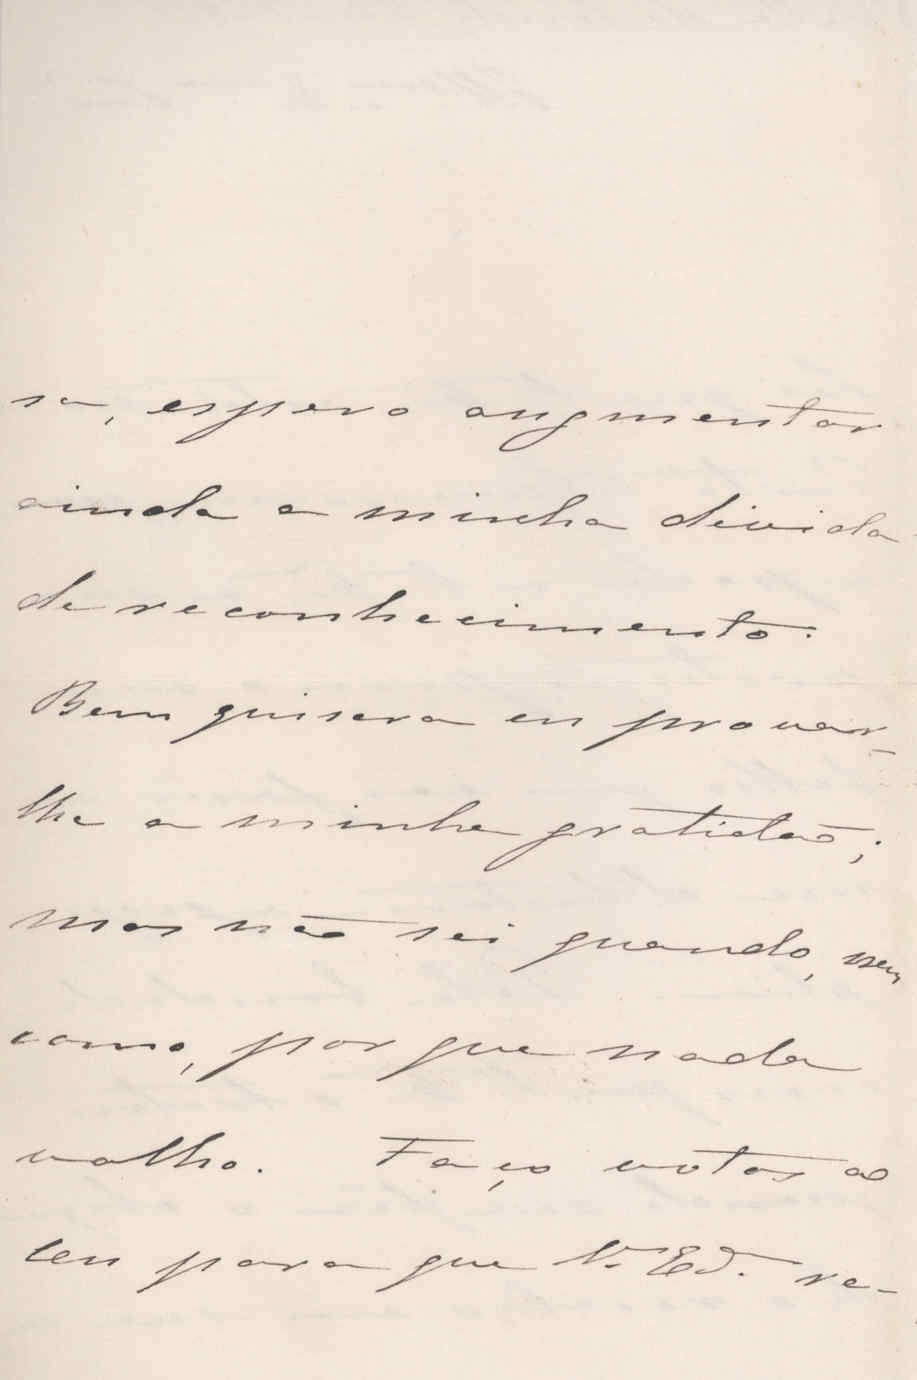 sa, espero augmentar
ainda a minha divida
de reconhecimento.
Bem quisera eu provar-
lhe a minha gratidão;
mas não sei quando, nem
como, por que nada
valho. Faço votos ao
ceu para que V. Ex.ª re-